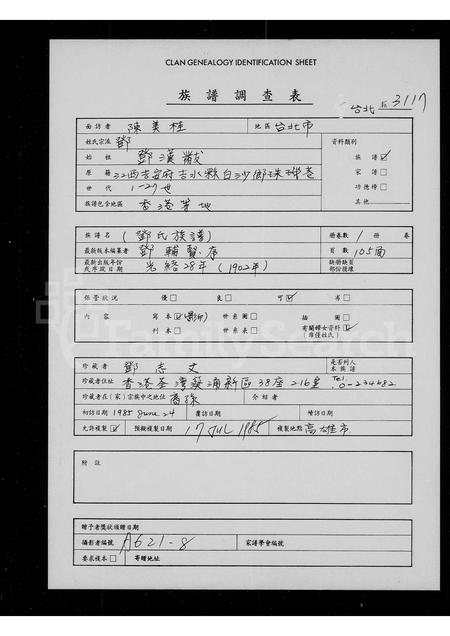 CLAN GENEALOGY IDENTIFICATION SHEET
族譜調查表
台北 3117
面訪者 陳美桂 地區 台北市
姓氏宗派 鄧 資料類別
始祖 鄧漢黻 族譜☑
原籍 江西吉安府吉水縣白沙鄉 家譜□
世代 1-27世 功德榜□
族譜包含地區 香港等地 其他
族譜名 (鄧氏族譜) 冊卷數 1 冊 卷
最新版本編纂者 鄧輔賢存 頁數 105面
最新出版年份或序跋日期 光緒28年(1902年) 缺冊缺頁部份損壞
保管狀況 優□ 良□ 可☑ 劣□
內容 寫本☑(影印) 世系圖□ 插圖□
刊本□ 世系表□ 有關婦女資料☑(非僅姓氏)
珍藏者 鄧志文 是否列入本族譜
珍藏者住址 香港荃灣葵涌新區38座216室 Tel. 0-234682
珍藏者在(家)宗族中之地位 裔孫 介紹者
初訪日期 1985 June 24 覆訪日期 續訪日期
允許複製☑ 預擬複製日期 17 JUL 1985 複製地點 高雄市
附註
贈予者獎狀頒贈日期
攝影者編號 A621-8 家譜學會編號
要求複本□ 寄贈地址
FamilySearch